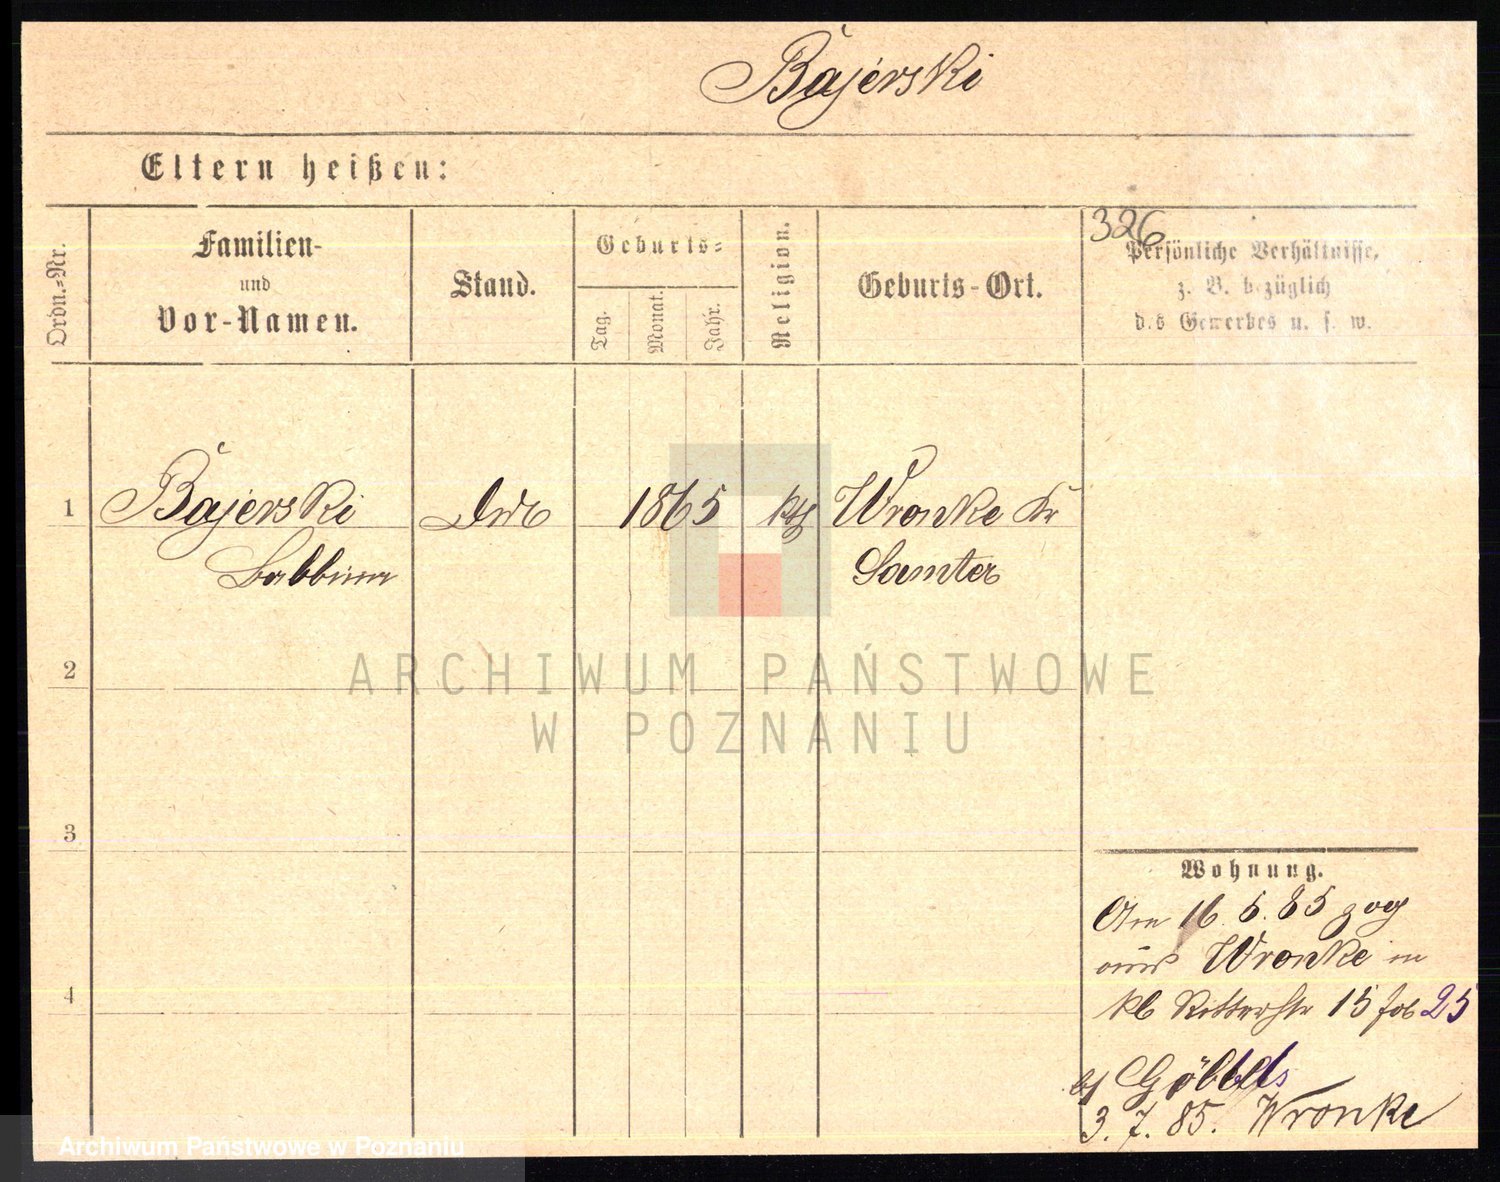 Bajerski
Eltern heißen:
326
Ordn.-Nr.
Familien-
und
Vor-Namen.
Stand.
Geburts-
Tag.
Monat.
Jahr.
Religion.
Geburts-Ort.
Persönliche Verhältnisse,
z. B. bezüglich
des Gewerbes u. s. w.
1 Bajerski 1865 kth Wronke Kr
Samter
2
3
4
Wohnung.
Am 16. 6. 85 zog
aus Wronke in
Ritterstr 15 25
bei Göbbels
3. 7. 85. Wronke
ARCHIWUM PAŃSTWOWE
W POZNANIU
Archiwum Państwowe w Poznaniu